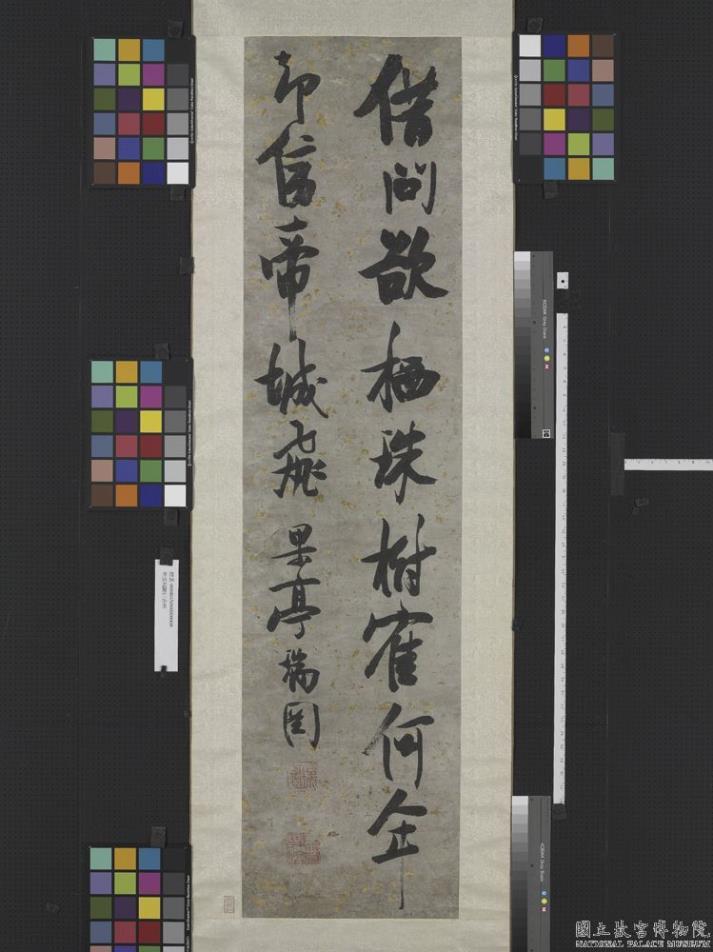 借問欲栖珠樹寉何年
却傍帝城飛 果亭瑞圖
國立故宮博物院
NATIONAL PALACE MUSEUM